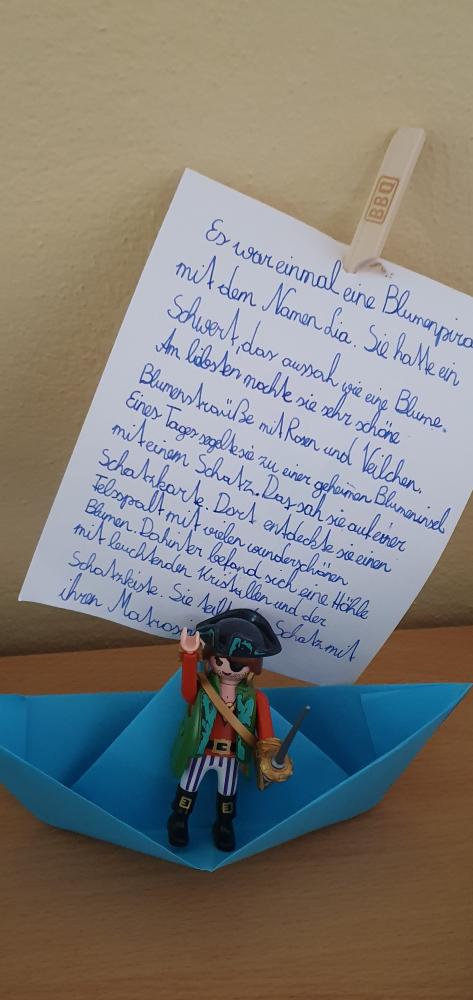 BBQ
Es war einmal eine Blumenpira
mit dem Namen Lia. Sie hatte ein
Schwert, das aussah wie eine Blume.
Am liebsten mochte sie sehr schöne
Blumensträuße mit Rosen und Veilchen.
Eines Tages segelte sie zu einer geheimen Blumeninsel
mit einem Schatz. Das sah sie auf einer
Schatzkarte. Dort entdeckte sie einen
Felsspalt mit vielen wunderschönen
Blumen. Dahinter befand sich eine Höhle
mit leuchtenden Kristallen und der
Schatzkiste. Sie teilt Schatz mit
ihren Matros